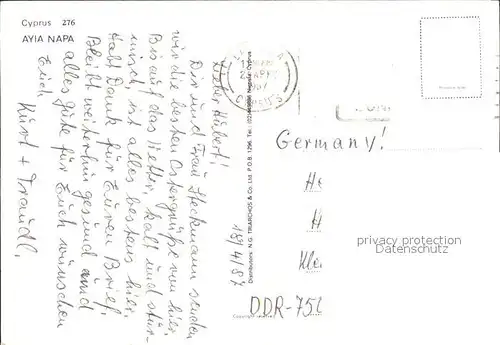 Cyprus 276
AYIA NAPA
Lieber Hubert!
Dir und Frau Heckmann senden
wir die besten Ostergrüße von hier.
Bis auf das Wetter, kalt und stür-
misch, ist alles bestens hier.
Hab Dank für Euren Brief.
Bleibt weiterhin gesund und
alles Gute für Euch wünschen
Euch
Kurt + Traudl.
18/4/87
Distributors: N.G. TRIARCHOS & Co. Ltd. P.O.B. 1296, Tel.
Nicosia Cyprus
Copyright
Germany!
He
H
Kle
DDR-750
privacy protection
www.oldthing.de